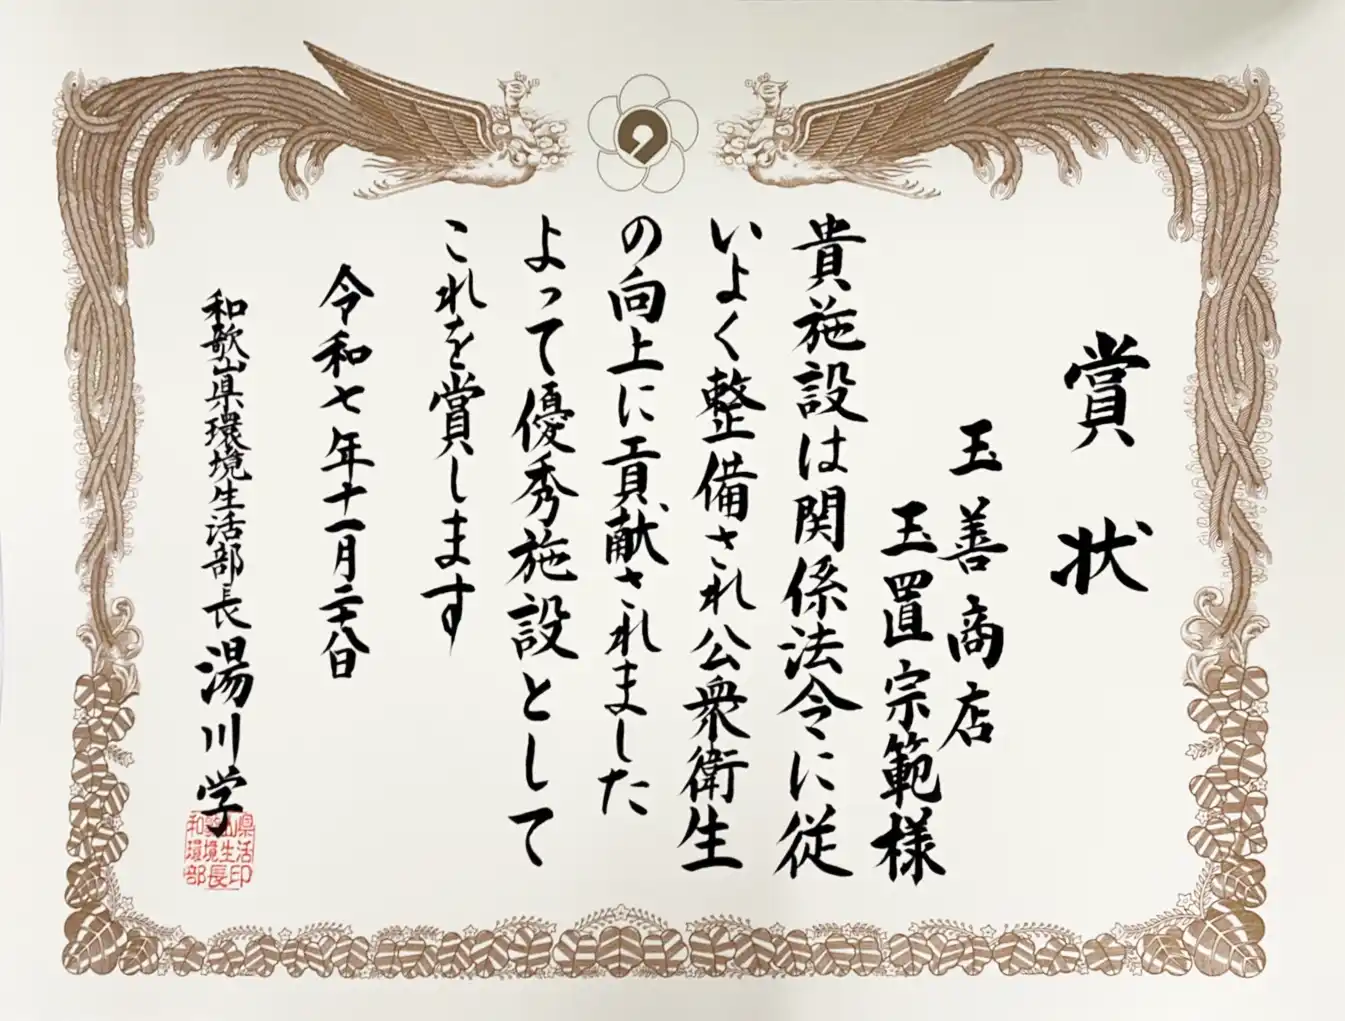 賞状
玉善商店
玉置宗範様
貴施設は関係法令に従
いよく整備され公衆衛生
の向上に貢献されました
よって優秀施設として
これを賞します
令和七年十一月二十八日
和歌山県環境生活部長 湯川学
和歌山県
環境生活
部長印